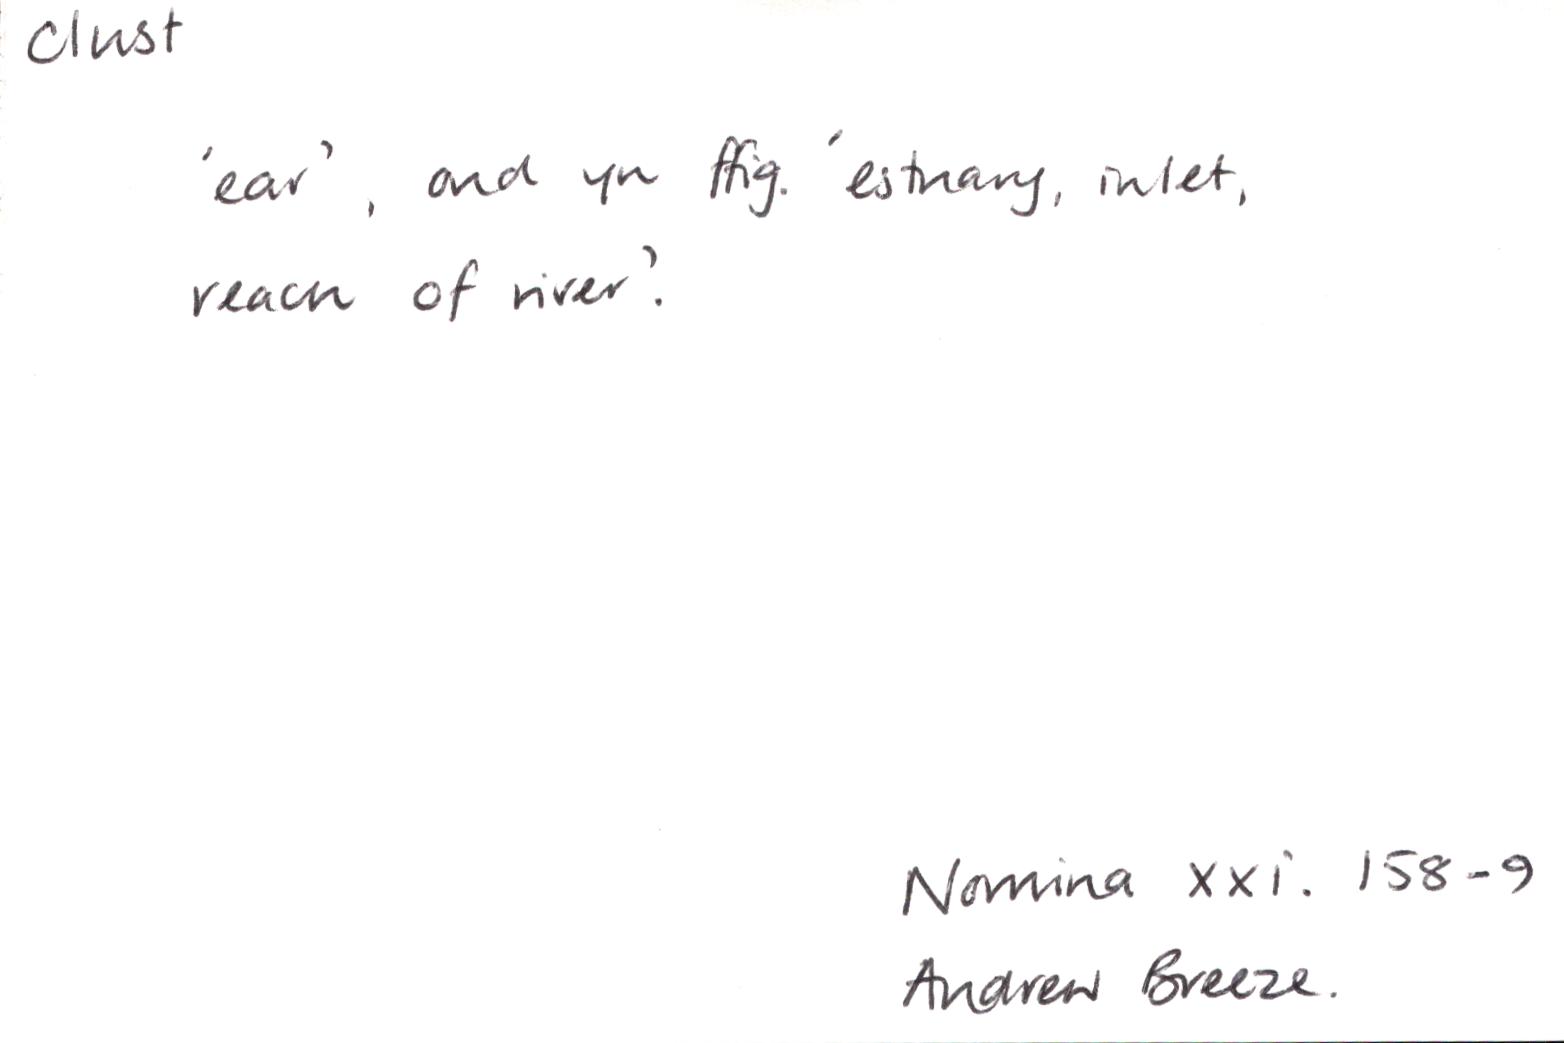 clust
'ear', ond yn ffig. 'estuary, inlet,
reach of river'.
Nomina xxi. 158-9
Andrew Breeze.